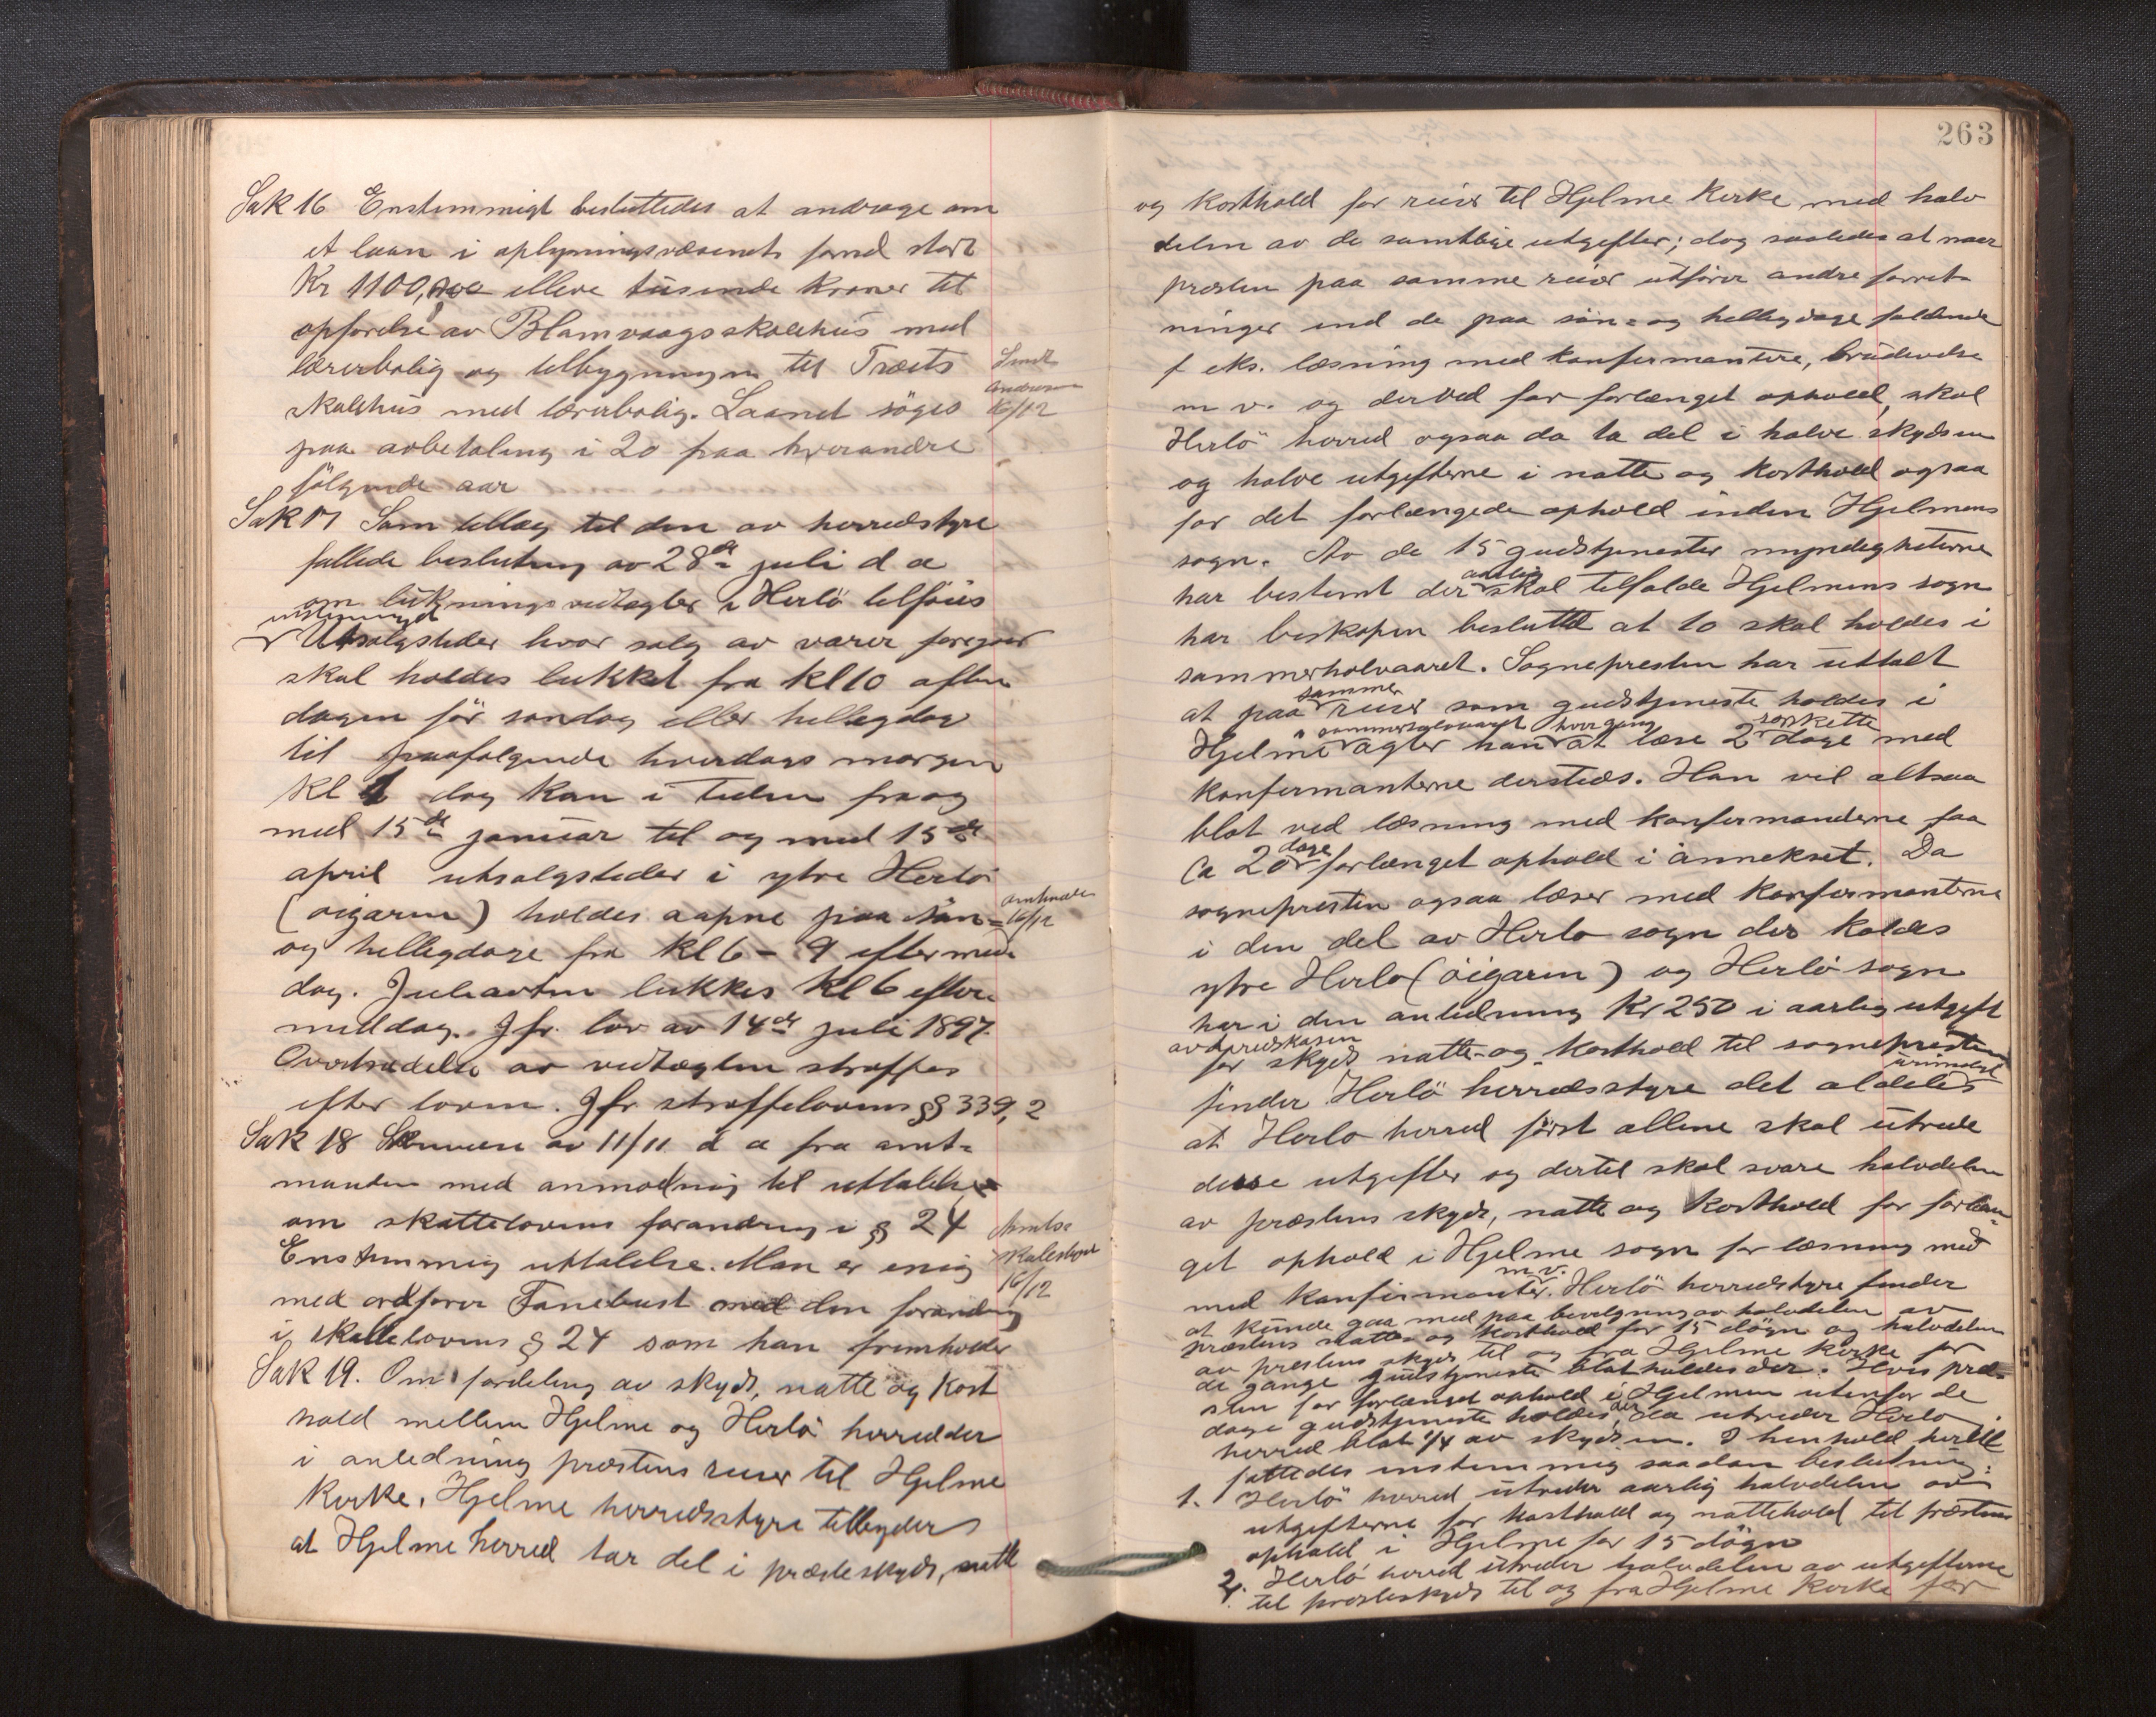 Sak 16 Enstemmigt besluttedes at andrage om
et laan i oplysningsvæsenets fond stort
Kr 1100,000 elleve tusende kroner til
opførelse av Blomvaagsskolehus med
lærerbolig og tilbygningen til Træets
skolehus med lærerbolig. Laanet søges
paa avbetaling i 20 paa hverandre
følgende aar
Sendt
16/12
Sak 17 Som tillæg til den av herredstyre
fattede beslutning av 28de juli d a
om lukningsvedtægter i Herlö tilföies
enstemmigt
Utsalgsteder hvor salg av varer foregaar
skal holdes lukket fra kl 10 aften
dagen för søndag eller helligdag
til paafølgende hverdags morgen
kl dog kan i tiden fra og
med 15de januar til og med 15de
april utsalgsteder i ytre Herlö
(öigaren) holdes aapne paa søn-
og helligdage fra kl 6 - 9 eftermid-
dag. Juleaften lukkes kl 6 efter-
middag. Jfr. lov av 14de juli 1897.
Overtrædelse av vedtægten straffes
efter loven. Jfr straffelovens §§ 339, 2
16/12
Sak 18 Skrivelse av 11/11 d a fra amt-
manden med anmodning til uttalelse
om skattelovens forandring i § 24
Enstemmig uttalelse. Man er enig
med ordfører Fanebust med den forandring
i skattelovens § 24 som han fremholder
16/12
Sak 19. Om fordeling av skyds, natte og kost
hold mellem Hjelme og Herlö herreder
i anledning præstens reiser til Hjelme
kirke. Hjelme herredsstyre tilbyder
at Hjelme herred tar del i prædeskyds, natte
263
og kosthold for reiser til Hjelme kirke med halv
delen av de samtlige utgifter; dog saaledes at naar
presten paa samme reise utfører andre forret-
ninger end de paa søn- og helligdage faldende
f eks. læsning med konfirmantere, brudevielse
m v. og derved faar forlænget ophold, skal
Herlö herred ogsaa da ta del i halve skydsen
og halve utgifterne i natte og kosthold ogsaa
for det forlængede ophold inden Hjelmens
sogn. Av de 15 gudstjenester myndigheterne
har bestemt der aarlig skal tilfalde Hjelmens sogn
har biskopen besluttet at 10 skal holdes i
sommerhalvaaret. Sognepresten har uttalt
at paa samme reise som gudstjeneste holdes i
Hjelme i sommerhalvaaret agter han hver gang at læse 2 dage med
konfirmanterne dersteds. Han vil altsaa
blot ved læsning med konfirmanderne faa
Ca 20 dage forlænget ophold i annekset. Da
sognepresten ogsaa læser med konfirmanterne
i den del av Herlo sogn der kaldes
ytre Herlo (öigaren) og Herlö sogn
har i den anledning Kr 250 i aarlig utgift
av herredskassen
for skyds natte- og kosthold til sognepresten
finder Herlö herredsstyre det aldeles urimeligt
at Herlo herred først allene skal utrede
disse utgifter og dertil skal svare halvdelen
av præstens skyds, natte og kosthold for forlæn-
get ophold i Hjelme sogn for læsning med
med konfirmanter m.v. Herlö herredsstyre finder
at kunde gaa med paa bevilgning av halvdelen av
præstens natte- og kosthold for 15 døgn og halvdelen
av præstens skyds til og fra Hjelme kirke for
de gange gudstjeneste blot holdes der. Hvis præ-
sten faar forlænget ophold i Hjelmen utenfor de
dage gudstjeneste holdes der, da utreder Herlo
herred blot 1/4 av skydsen. I henhold hertil
fattedes enstemmig saadan beslutning:
1. Herlö herred utreder aarlig halvdelen av
utgifterne for kosthold og nattehold til præstens
ophold i Hjelme for 15 døgn
2. Herlö herred utreder halvdelen av utgifterne
til presteskyds til og fra Hjelme kirke for